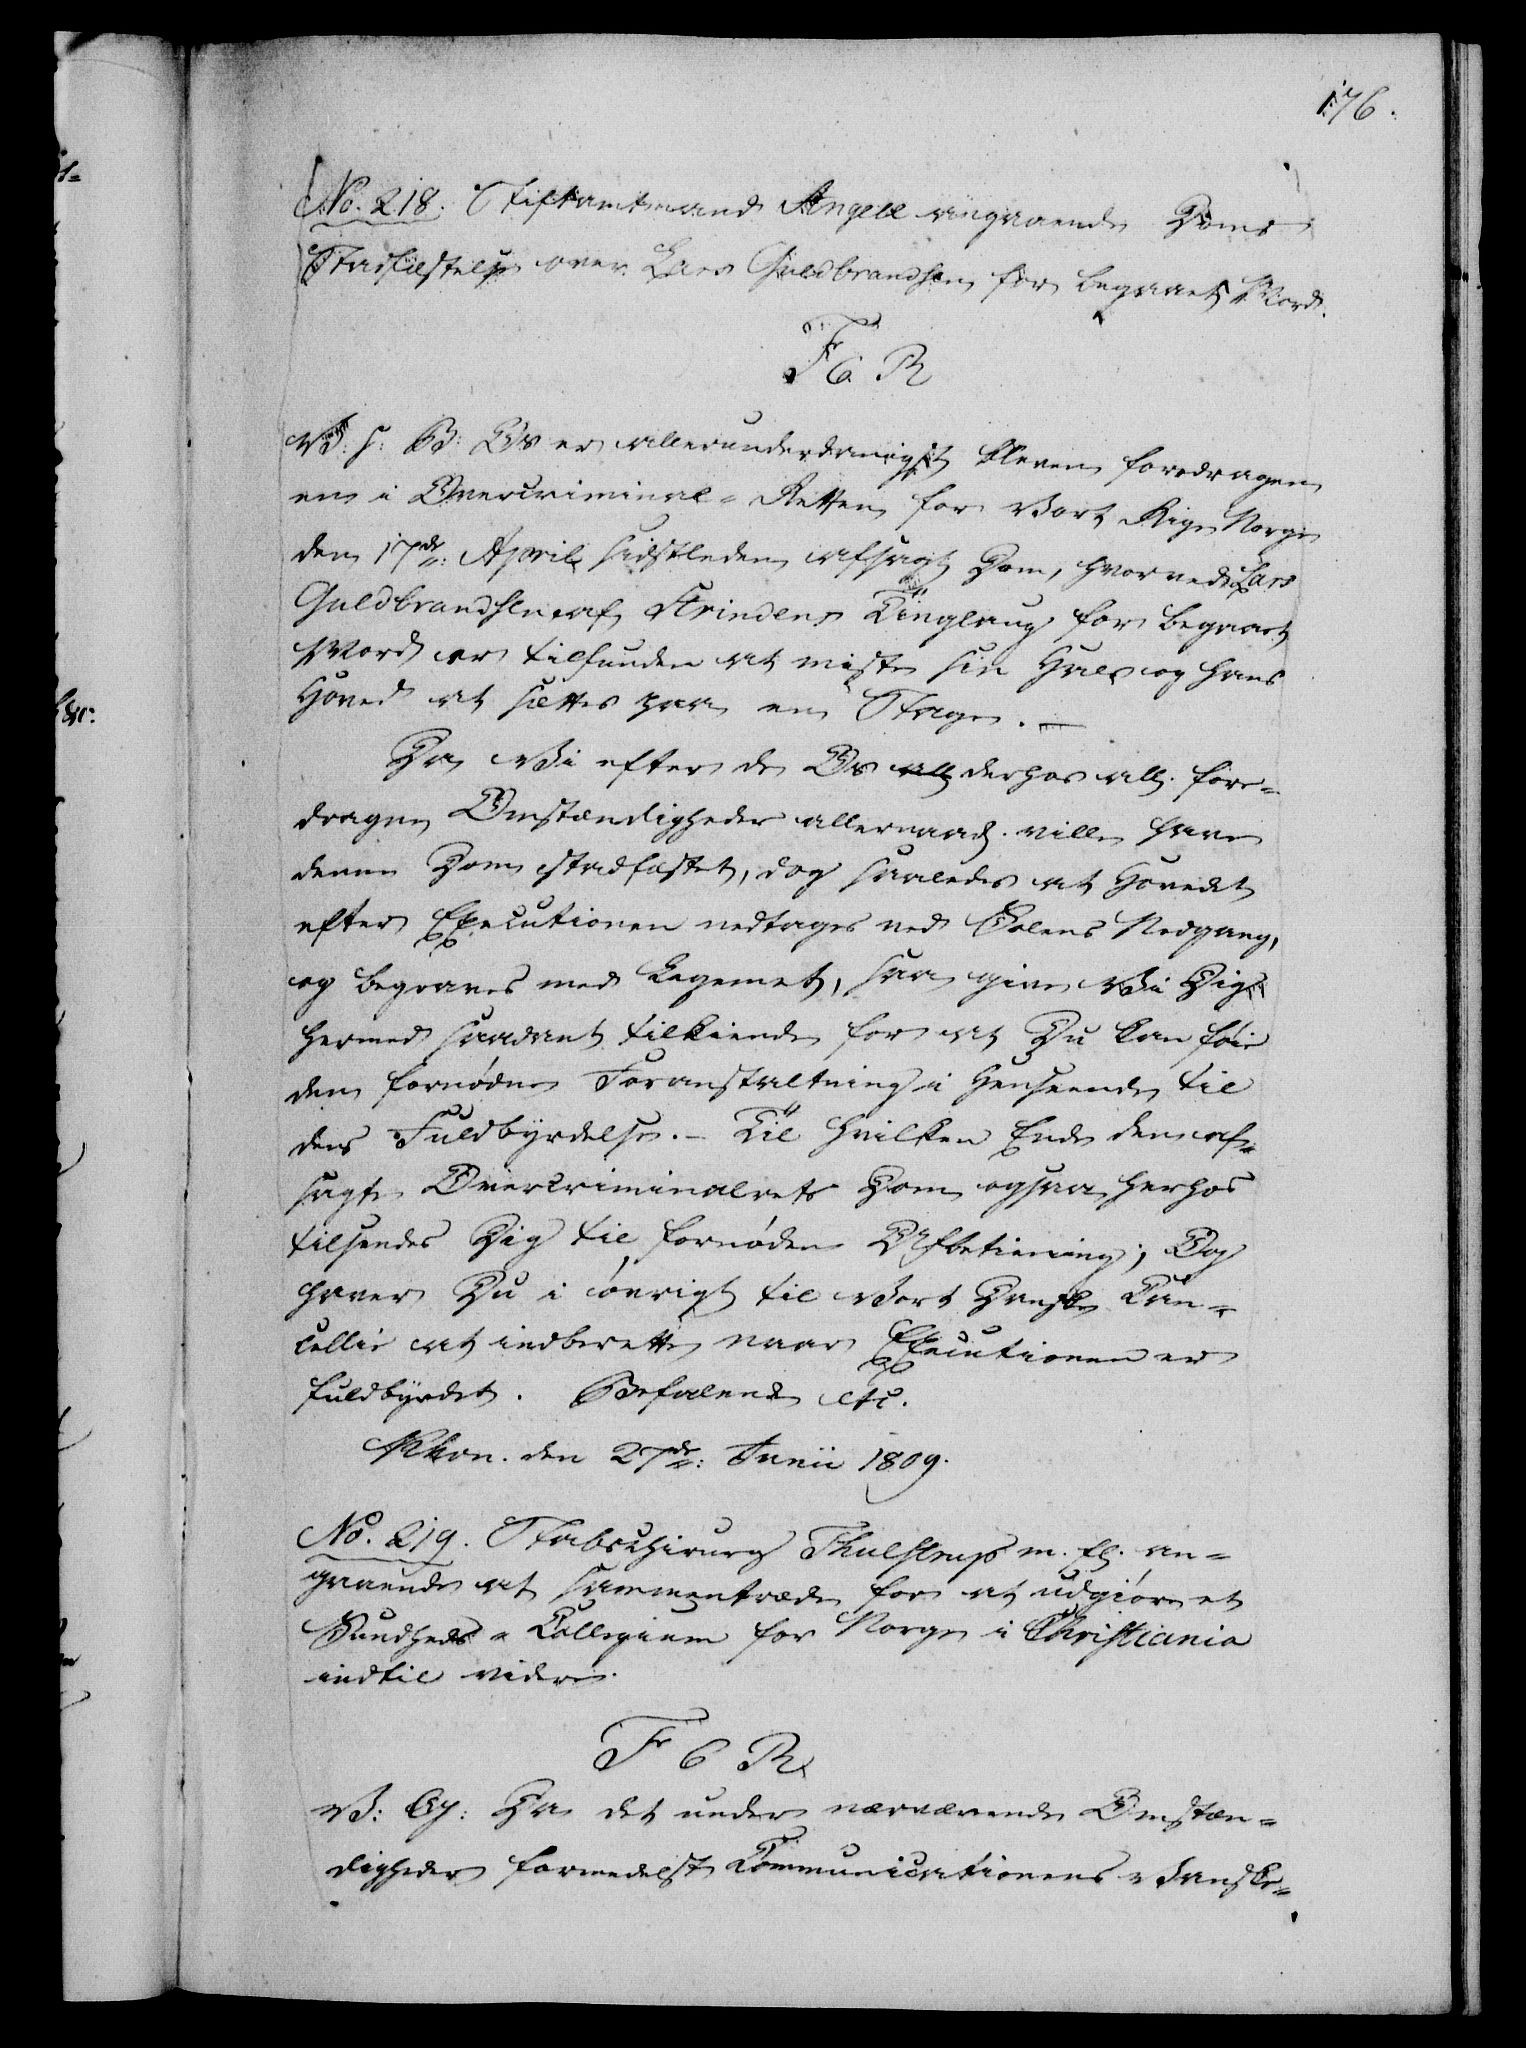 176.
No. 218. Stiftamtmand Angell angaaende Doms
Stadfæstelse over Lars Guldbrandsen for begaaet Mord.
F 6 R
V: s: G: Os er allerunderdanigst bleven foredragen
en i Overcriminal-Retten for Vort Rige Norge
den 17de: April sidstleden afsagt Dom, hvorved Lars
Guldbrandsen af Strindens Tinglaug for begaaet
Mord er tilfunden at miste sin Hals og hans
Hoved at sættes paa en Stage. —
Da Vi efter de Os all derhos all. fore-
dragne Omstændigheder allernaad. ville have
denne Dom stadfæstet, dog saaledes at Hovedet
efter Executionen nedtages ved Solens Nedgang,
og begraves med Legemet, saa give Vi Dig
hermed saadant tilkiende for at Du kan føie
den fornødne Foranstaltning i Henseende til
dens Fuldbyrdelse. – Til hvilken Ende den af-
sagte Overcriminalrets Dom ogsaa herhos
tilsendes Dig til fornøden Afbetiening; Og
haver Du i øvrigt til Vort Danske Can-
cellie at indberette naar Executionen er
fuldbyrdet. Befalende etc.
Khvn. den 27de: Junii 1809.
No. 219. Stabschirurg Thulstrup m. fl. an-
gaaende at sammentræde for at udgiøre et
Sundheds-Collegium for Norge i Christiania
indtil videre.
F 6 R
V: G: Da det under nærværende Omstæn-
digheder formedelst Communicationens Vanske-